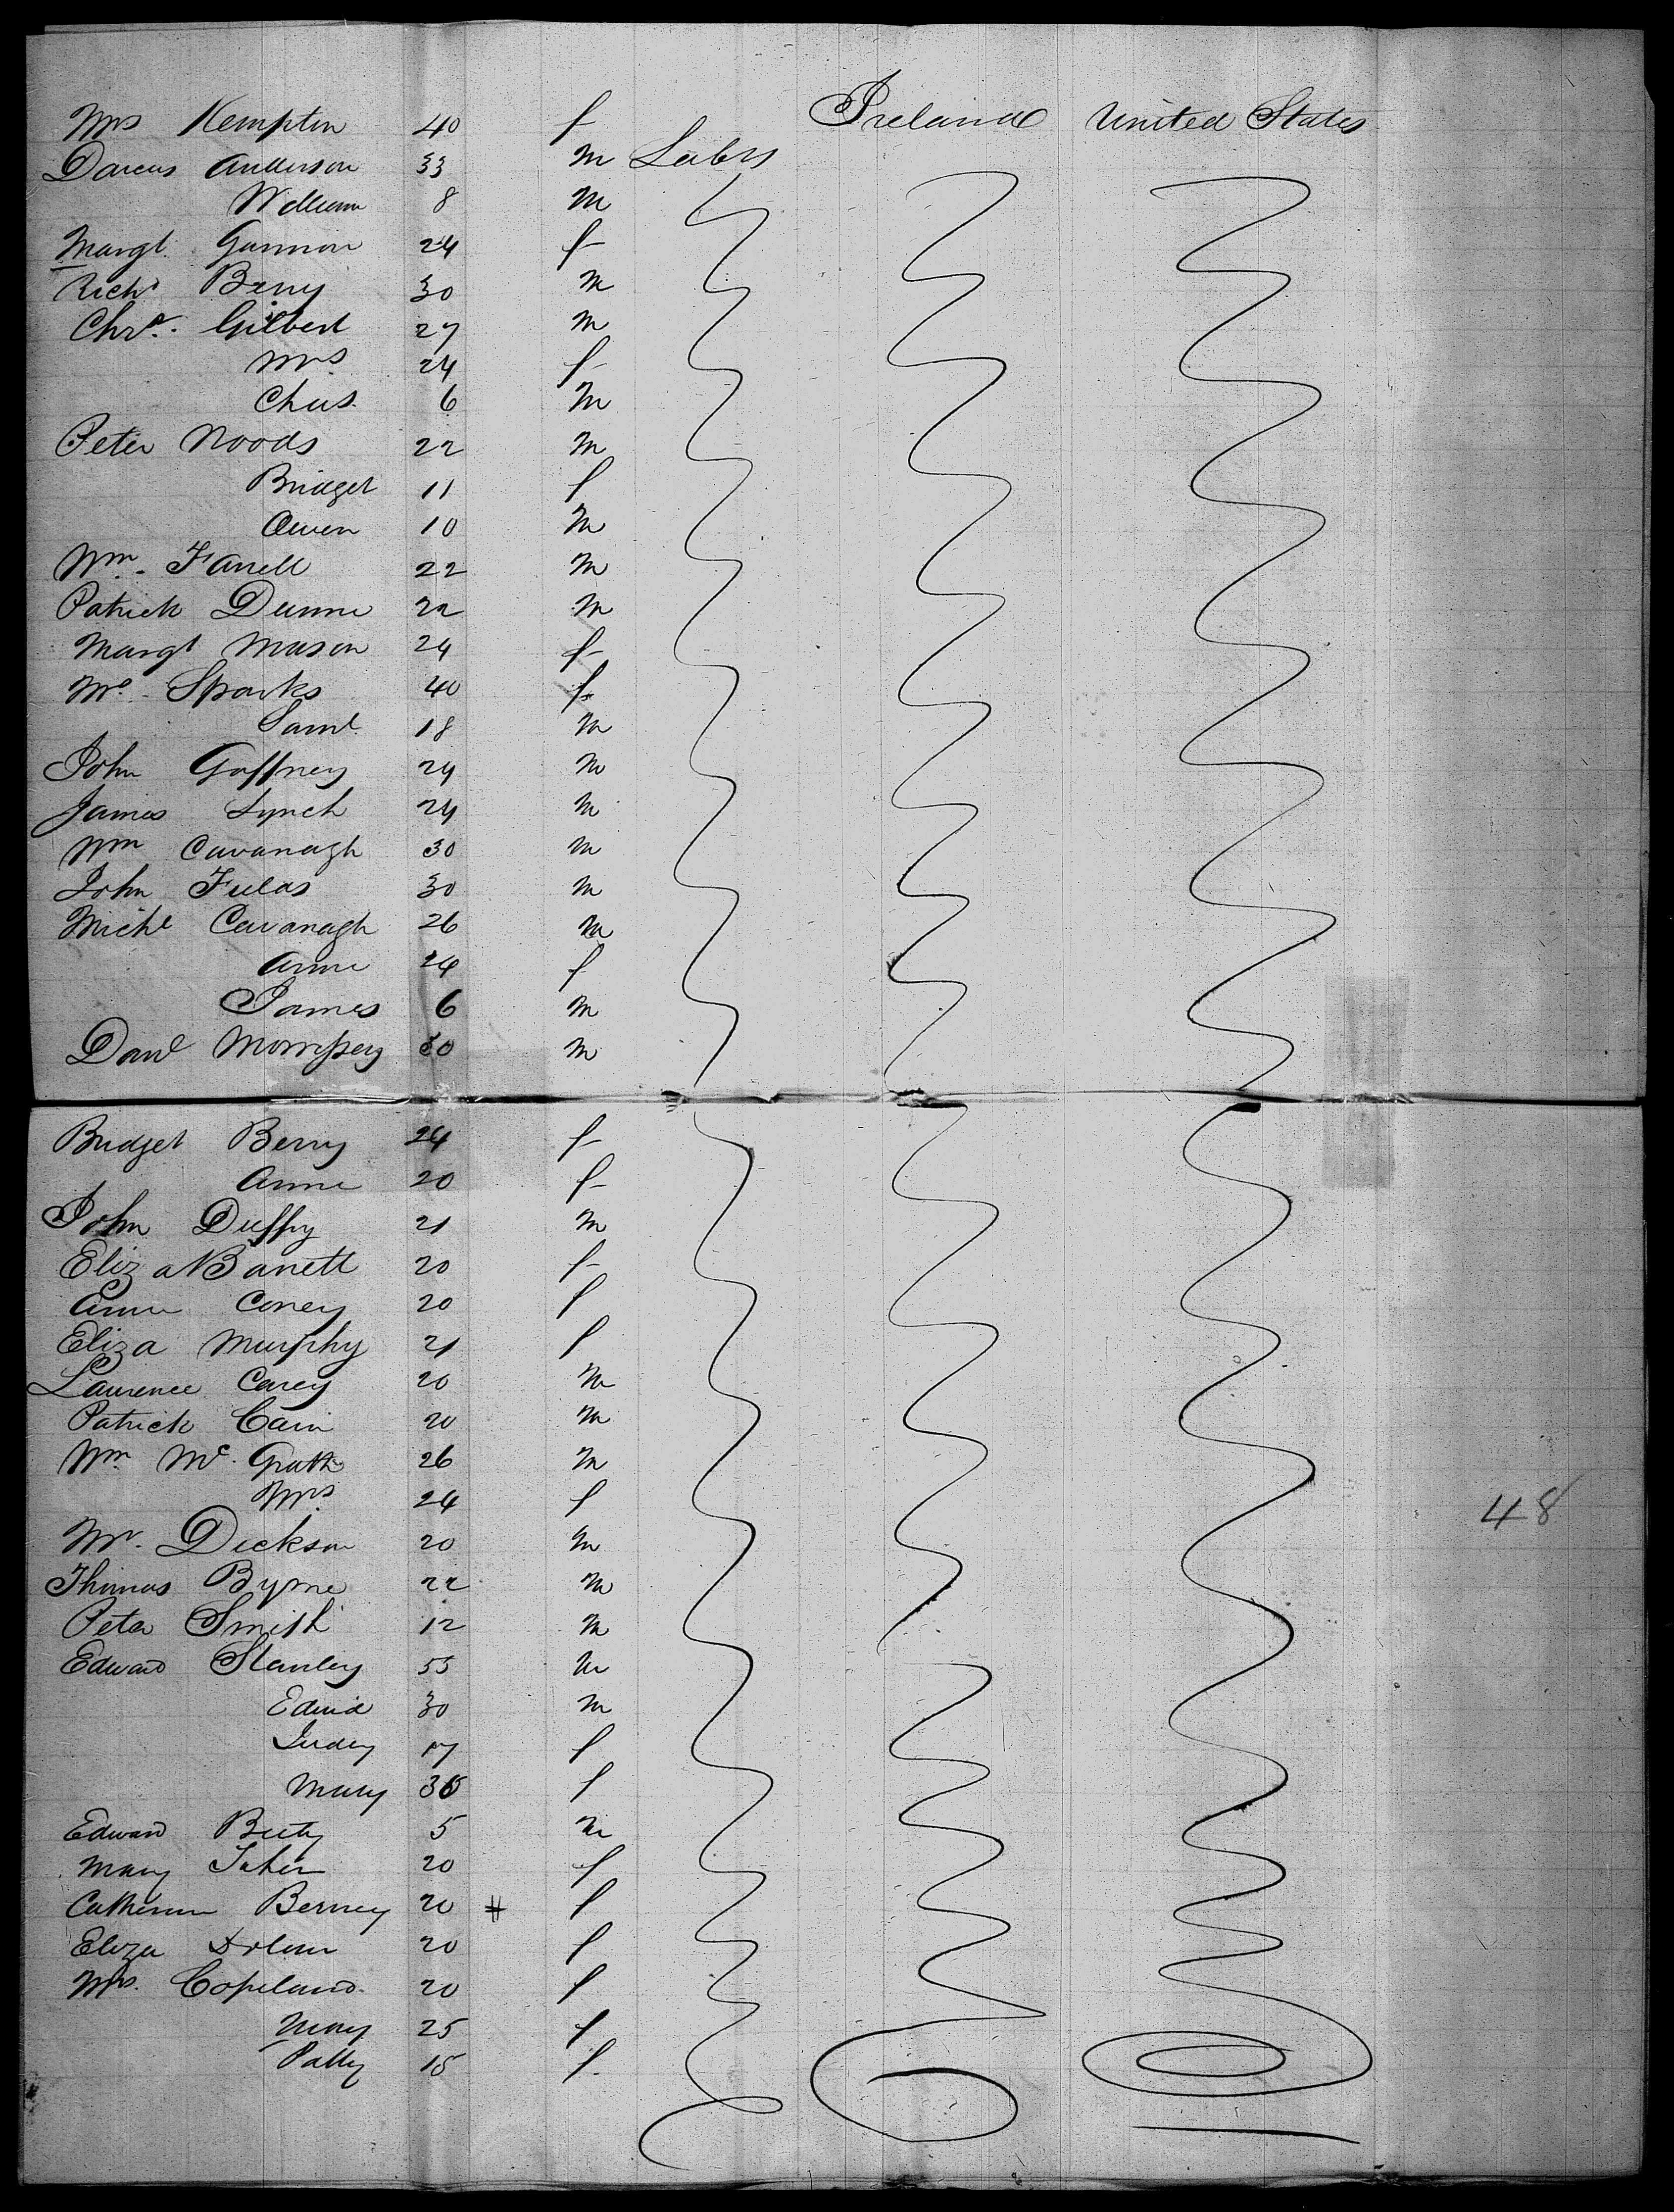 Mrs Kempton 40 f Ireland United States
Darcus Anderson 33 m Labrs
William 8 m
Margt. Gannon 24 f
Richd Berry 30 m
Chrs. Gilbert 27 m
Mrs 24 f
Chas. 6 m
Peter Woods 22 m
Bridget 11 f
Owen 10 m
Wm. Farrell 22 m
Patrick Dunne 22 m
Margt Mason 24 f
Mrs Sparks 40 f
Saml. 18 m
John Gaffney 24 m
James Lynch 24 m
Wm Cavanagh 30 m
John 30 m
Michl Cavanagh 26 m
Anne 24 f
James 6 m
Danl Morrissey 30 m
Bridget Berry 24 f
Anne 20 f
John Duffy 21 m
Eliza Barrett 20 f
Anne Coney 20 f
Eliza Murphy 21 f
Laurence Carey 20 m
Patrick Cain 20 m
Wm. Mc. Grath 26 m
Mrs. 24 f
Mr. Dickson 20 m 48
Thomas Byrne 22 m
Peter Smith 12 m
Edward Stanley 55 m
Edwd 30 m
Judey 17 f
Mary 36 f
Edward 5 m
Mary 20 f
Catherine Berney 20 # f
Eliza Dolan 20 f
Mrs. Copeland 20 f
Mary 25 f
Patty 15 f